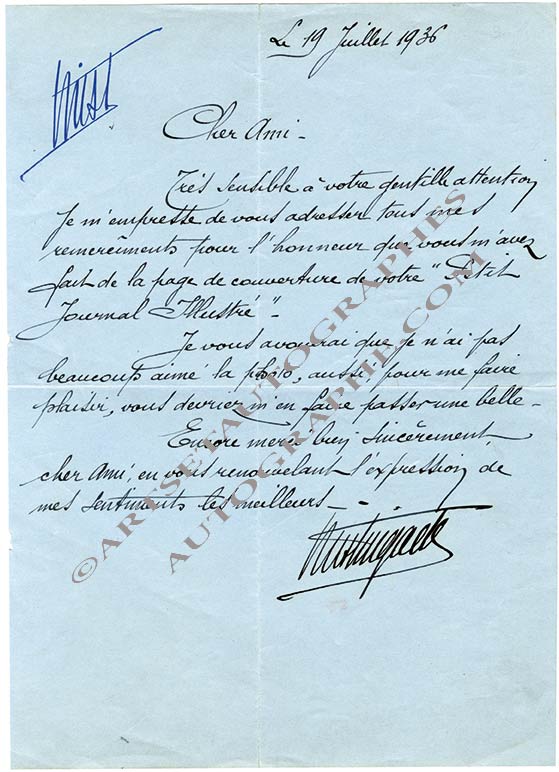 Le 19 Juillet 1936
Mist
Cher Ami -
Très sensible à votre gentille attention
Je m'empresse de vous adresser tous mes
remerciments pour l'honneur que vous m'avez
fait de la page de couverture de votre "Petit
Journal Illustré" -
Je vous avourai que je n'ai pas
beaucoup aimé la photo, aussi, pour me faire
plaisir, vous devriez m'en faire passer une belle -
Encore merci bien sincèrement
cher Ami, en vous renouvelant l'expression de
mes sentiments les meilleurs -
Mistinguett
©ARTSETAUTOGRAPHES
AUTOGRAPHE.COM